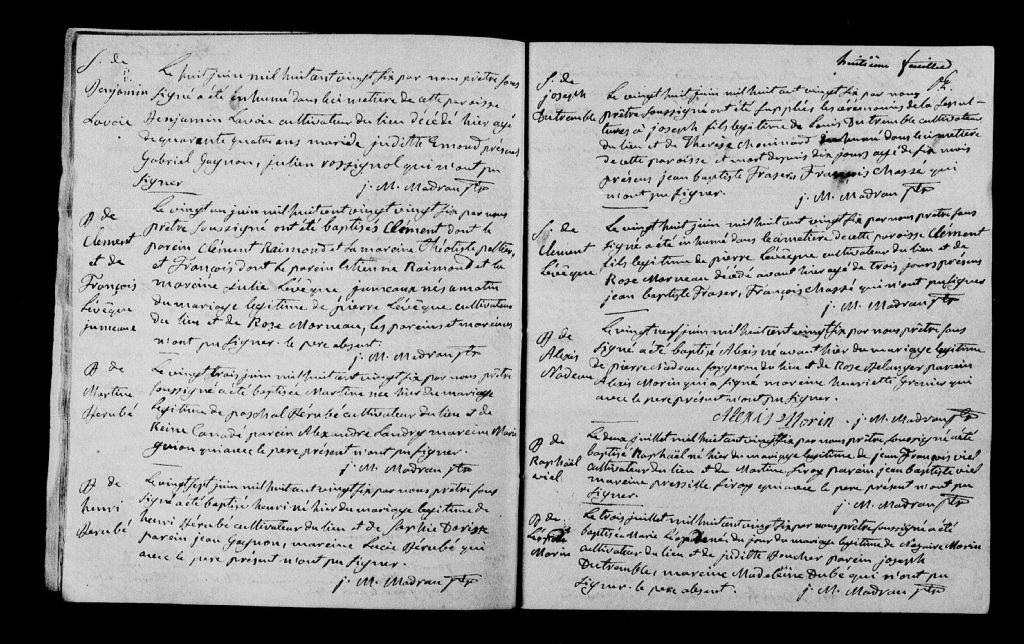 S. de
Benjamin
Lavoie
Le huit juin mil huit cent vingt six par nous prêtre sous
signé a été inhumé dans le cimetiere de cette paroisse
Benjamin Lavoie cultivateur du lieu décédé hier agé
de quarante quatre ans marié de judith Emond présens
Gabriel Gagnon, julien rossignol qui n'ont pu
signer
j. M. Madran ptre
B de
Clement
et de
François
Lévêque
jumeaux
Le vingt un juin mil huit cent vingt six par nous
prêtre soussigné ont été baptisés Clement dont le
parein Clement Raimond et la mareine Théotiste peltier,
et François dont le parein Etienne Raimond et la
mareine Julie Levêque, jumeaux nés ce matin
du mariage legitime de pierre Lévêque cultivateur
du lieu et de Rose Morneau, les pareins et mareines
n'ont pu signer. le pere absent.
j. M. Madran ptr
B de
Martine
Berubé
Le vingt trois juin mil huit cent vingt six par nous prêtre
soussigné a été baptisée Martine née hier du mariage
legitime de paschal Bérubé cultivateur du lieu et de
Reine Canadé parein Alexandre Landry mareine Marie
guion qui avec le pere présent n'ont pu signer.
j. M. Madran ptr
B de
henri
Berubé
Le vingt sept juin mil huit cent vingt six par nous prêtre sous
signé a été baptisé henri né hier du mariage legitime de
henri Bérubé cultivateur du lieu et de Sophie
parein jean Gagnon, mareine Lucie Bérubé qui
avec le pere présent n'ont pu signer.
j. M. Madran ptr
huitième feuillet
S. de
joseph
Dutremble
Le vingt huit juin mil huit cent vingt six par nous
prêtre soussigné ont été supplées les cérémonies de la sepul-
tures à joseph fils legitime de Louis Dutremble cultivateur
du lieu et de Therèse Chouinard inhumé dans le cimetiere
de cette paroisse et mort depuis dix jours agé de six mois
présens jean baptiste Fraser, François Massé qui
n'ont pu signer.
j. M. Madran ptr
S. de
Clement
Lévêque
Le vingt huit juin mil huit cent vingt six par nous prêtre sous
signé a été inhumé dans le cimetiere de cette paroisse Clement
fils legitime de pierre Lévêque cultivateur du lieu et de
Rose Morneau décédé avant hier agé de trois jours présens
jean baptiste Fraser, François Massé qui n'ont pu signer
j. M. Madran ptr
B de
Alexis
Nadeau
Le vingt neuf juin mil huit cent vingt six par nous prêtre sous
signé a été baptisé Alexis né avant hier du mariage legitime
de pierre Nadeau forgeron du lieu et de Rose Belanger parein
Alexis Morin qui a signé mareine henriette Grenier qui
avec le pere présent n'ont pu signer.
Alexis Morin. j. M. Madran ptr
B de
Raphaël
viel
Le deux juillet mil huit cent vingt six par nous prêtre soussigné a été
baptisé Raphaël né hier du mariage legitime de jean François viel
cultivateur du lieu et de Martine Siroy parein jean baptiste viel
mareine pressille Siroy qui avec le pere présent n'ont pu
signer.
j. M. Madran ptr
B de
Morin
Le trois juillet mil huit cent vingt six par nous prêtre soussigné a été
baptisée Marie née du jour du mariage legitime de Nazaire Morin
cultivateur du lieu et de judith Boucher parein joseph
Dutremble, mareine Madeleine Dubé qui n'ont pu
signer. le pere absent. j. M. Madran ptr